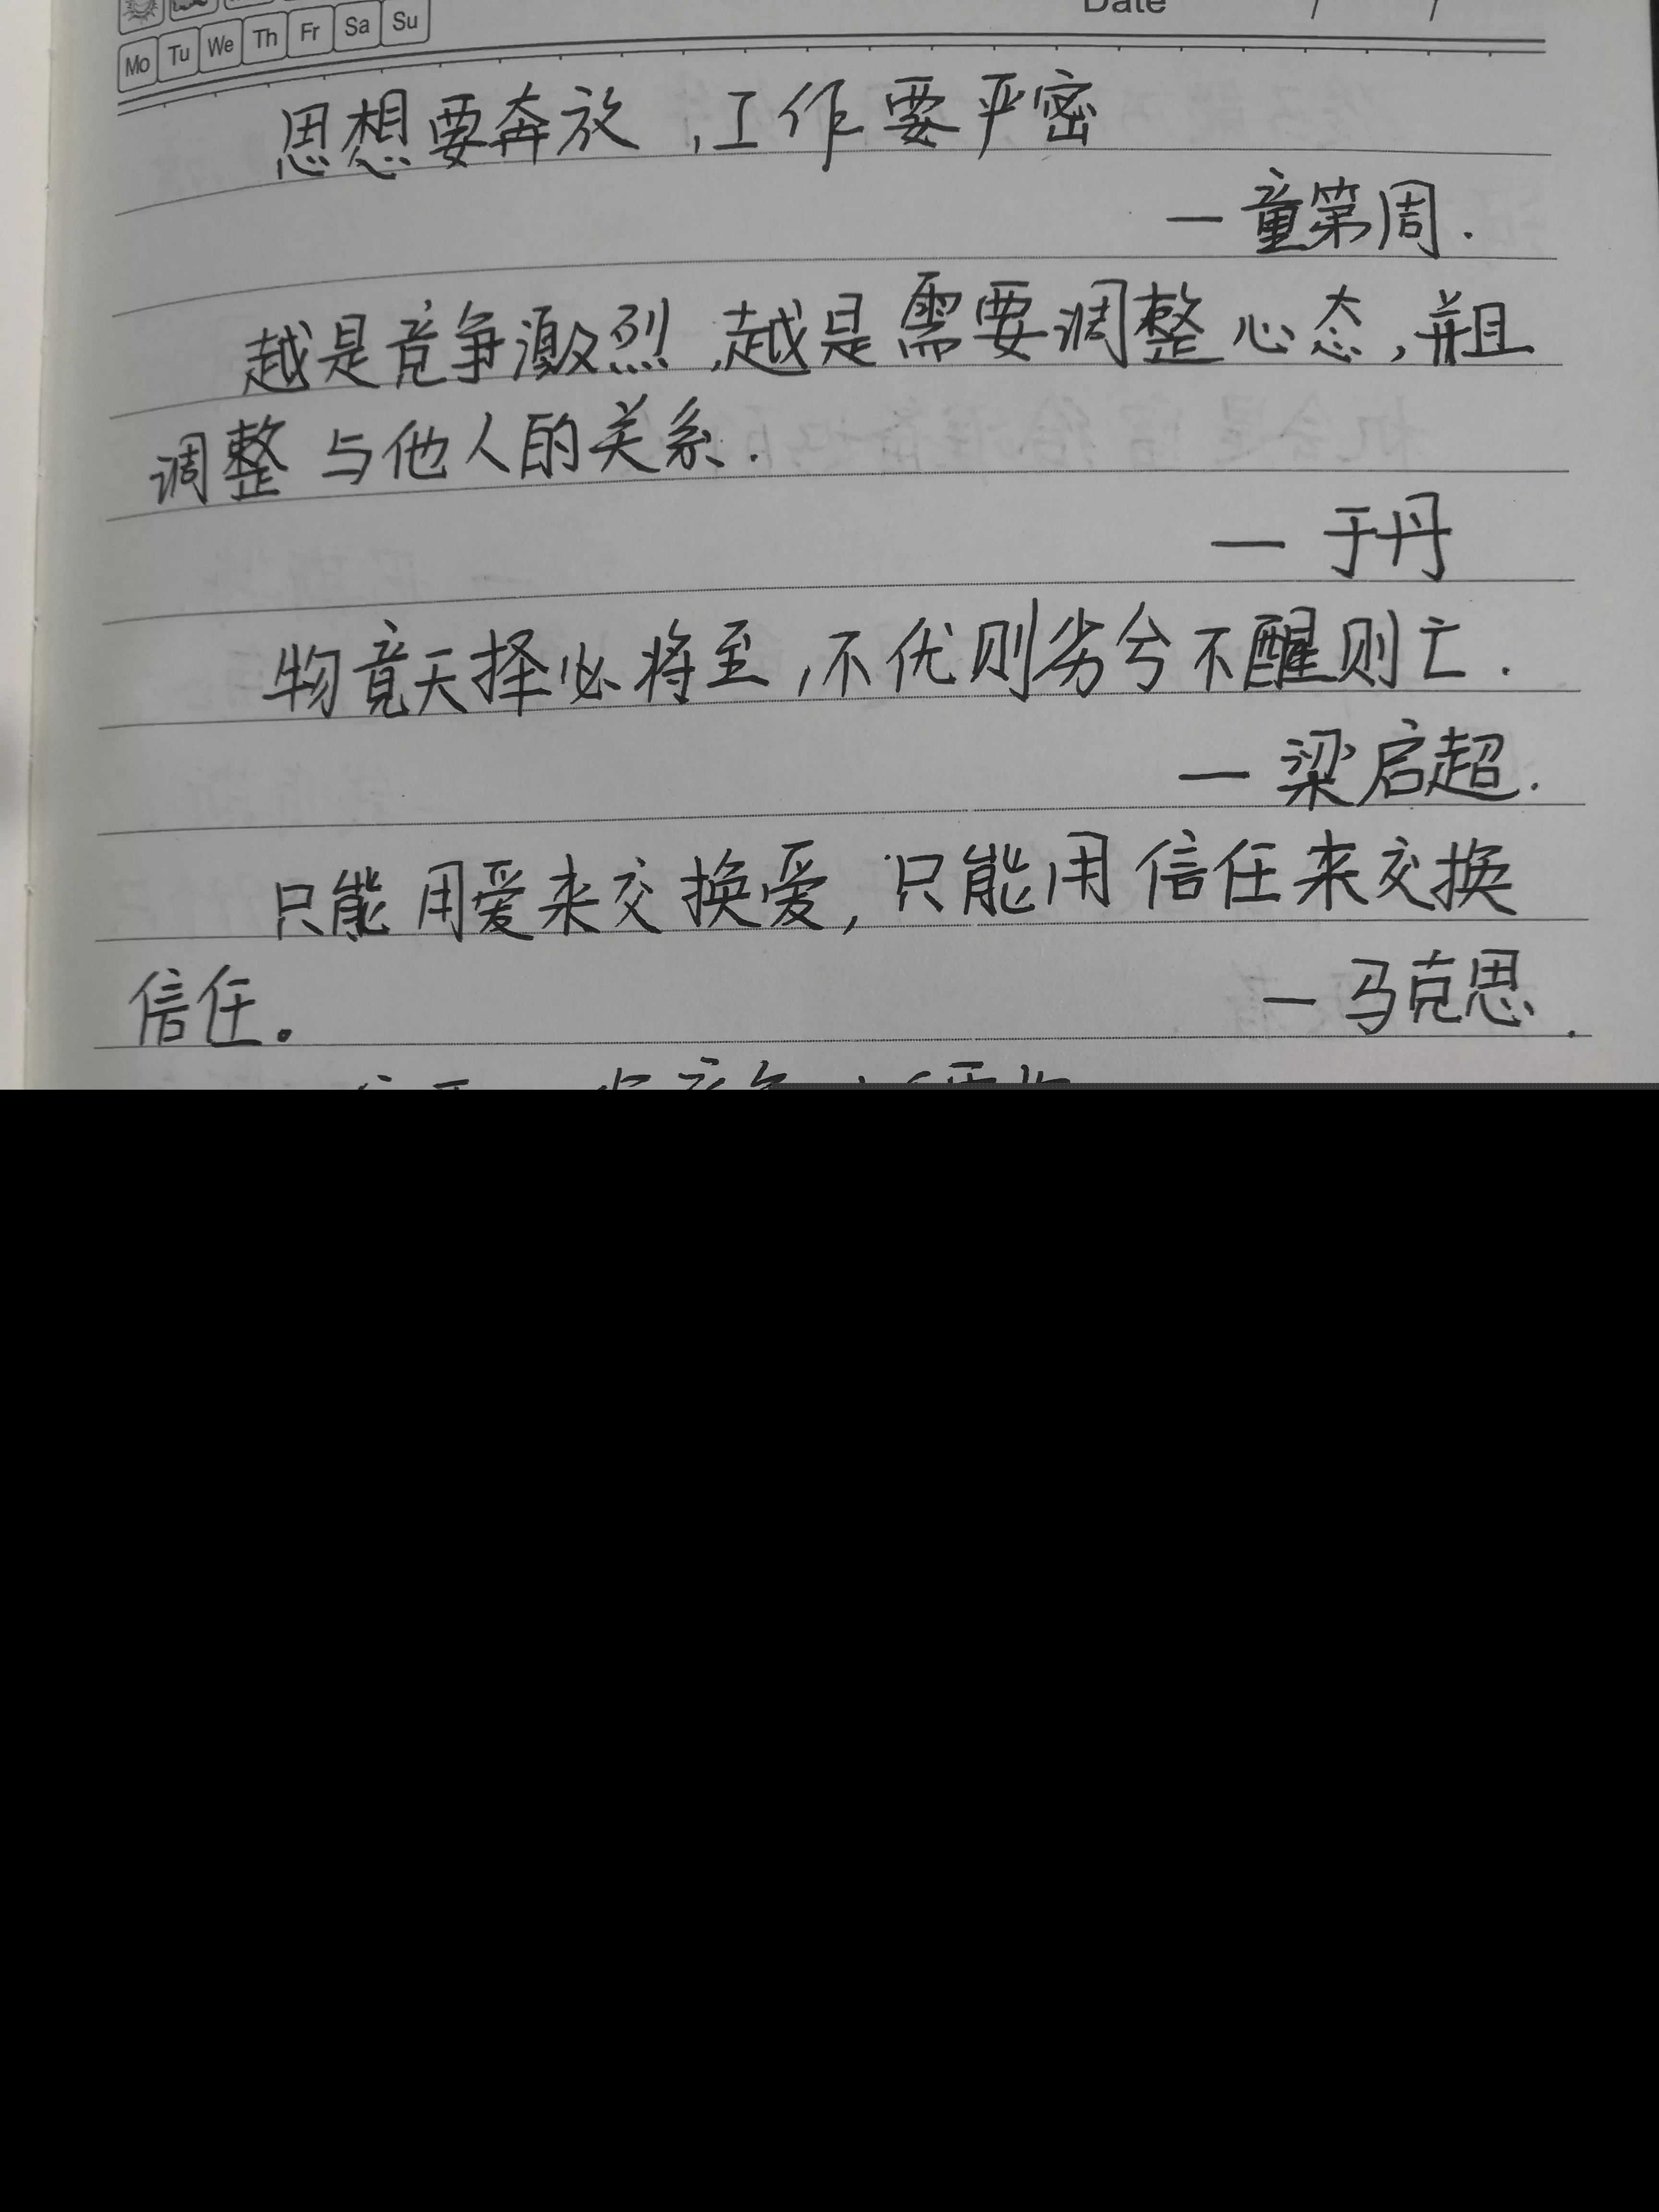 Date / /
Mo Tu We Th Fr Sa Su
思想要奔放,工作要严密
—童第周.
越是竞争激烈,越是需要调整心态,并且
调整与他人的关系.
—于丹
物竟天择必将至,不优则劣兮不醒则亡.
—梁启超.
只能用爱来交换爱,只能用信任来交换
信任。 —马克思.